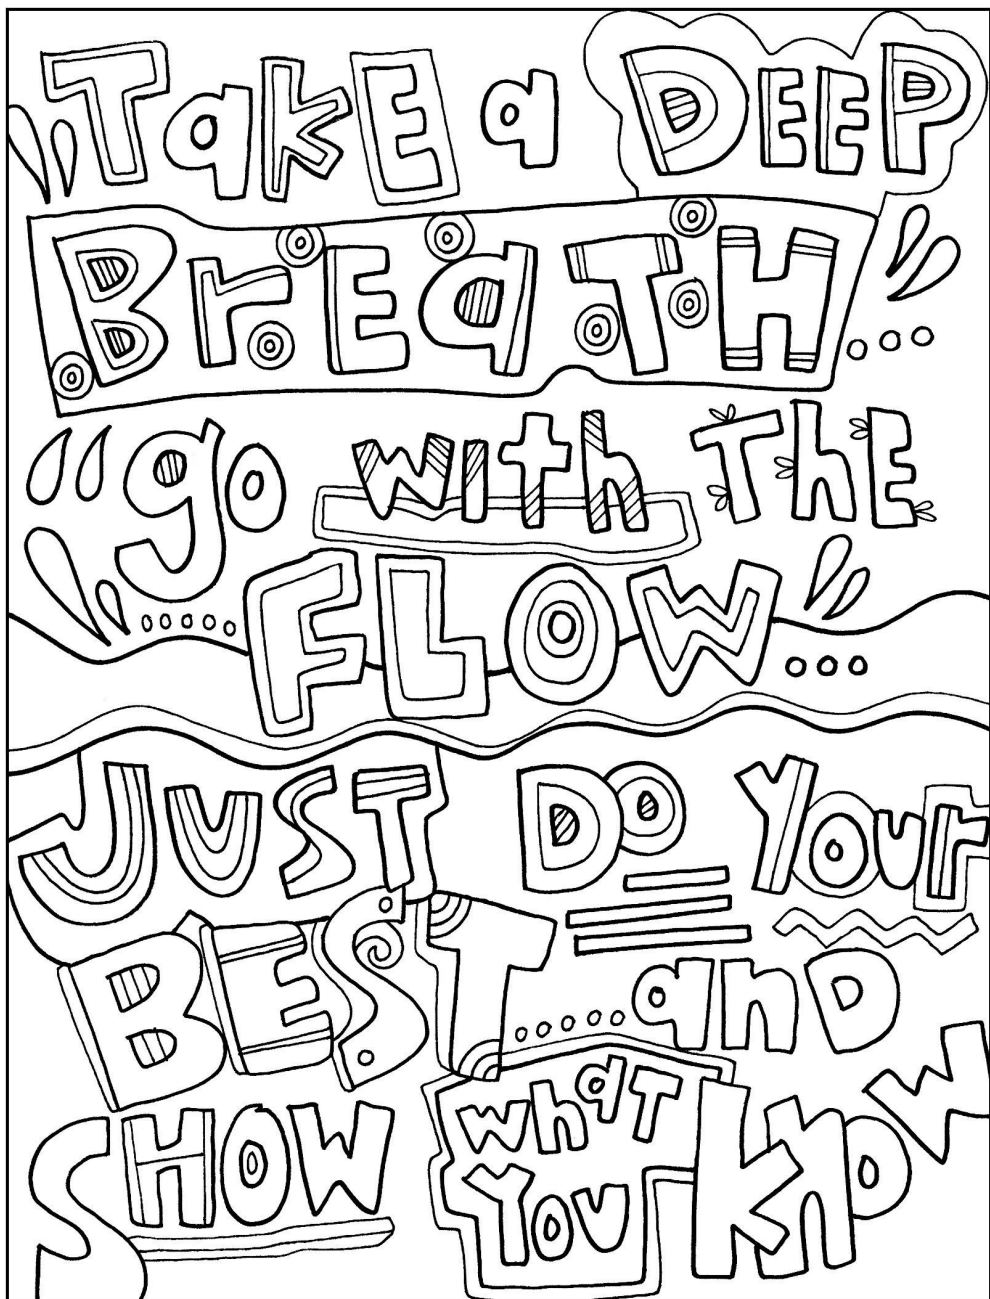 Take a DEEP
BrEaTH...
go with The
.....FLOW...
JUST DO Your
BEST.....anD
SHOW what know
you